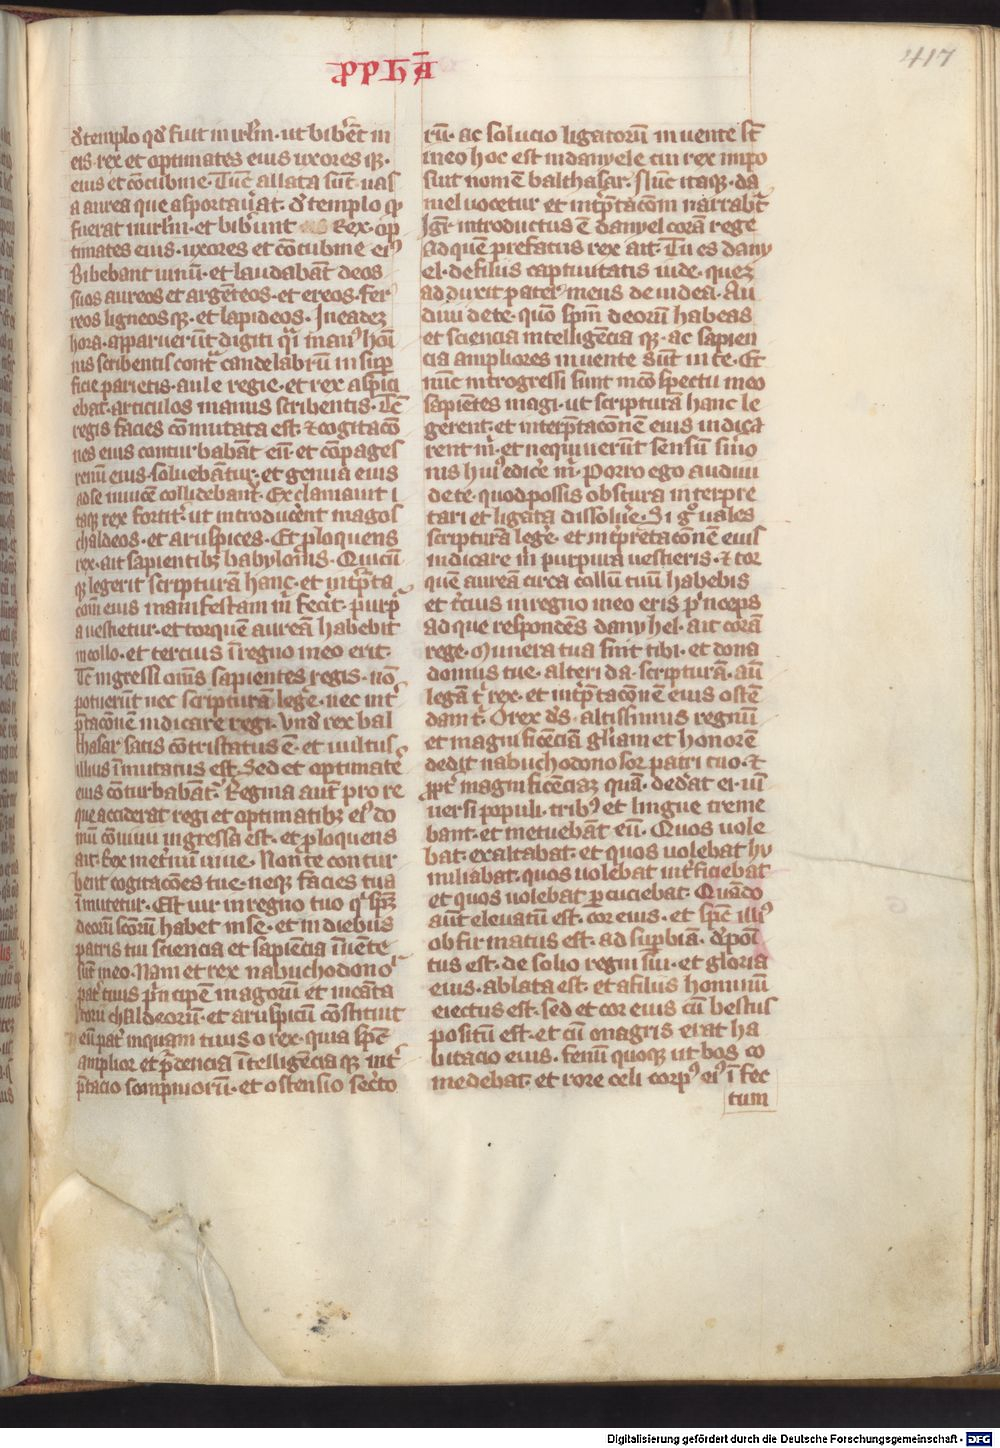 ꝓphā
417
d̕ templo qd̕ fuit in irl̄m · ut bib̕ēt in
eis · rex et optimates eius uxores qꝫ ·
eius et cōcubine · Tūc allata sūt · uas
a aurea que asportau̕at · d̕ templo q̄
fuerat in irl̄m · et bib̕unt Rex · op
timates eius · uxores et cōcubine ei᷒
Bibebant uinū · et laudabāt deos
suos aureos et argēteos · et ereos · fer
reos ligneosqꝫ · et lapideos · In eadeꝫ
hora · apparuer̄ut digiti q̄i man᷒ homi
nis scribentis cont̄ candelabrū in sup̄
ficie parietis · aule regie · et rex aspici
ebat · articulos manus scribentis · Tc̄
regis facies cōmutata est · ⁊ cogitacō
nes eius conturbabāt eū · et cōpages
renū eius · soluebātur · et genua eius
ad se inuicē collidebant · Exclamauit i
taqꝫ rex fortit̕ · ut introducer̄ent magos
chaldeos · et aruspices · Et ꝓloquens
rex · ait sapientibꝫ babylonis · Quicū
qꝫ legerit scripturā hanc · et int̕p̄ta
com̄ eius manifestam m̄ fec̕it · purp̄
a uestietur · et torquē aureā habebit
in collo · et tercius ī regno meo erit ·
Tc̄ ingressi om̄s sapientes regis · nō
potuerūt nec scripturā leg̕e · nec int̕
p̄tacōnē indicare regi · Vnd̕ rex bal
thasar satis cōtristatus ē · et uultus
illius īmutatus est · Sed et optimate
eius cōturbabāt̕ · Regina aut̄ pro re
que acciderat regi et optimatibꝫ ei᷒ do
mū cōuiuii ingressa est · et ꝓloquens
ait · Rex inet̕nū uiue · Non te contur
bent cogitacōes tue · neqꝫ facies tua
īmutetur · Est uir in regno tuo q̄ sp̄ꝫ
deorū sc̄orū habet in se · et in diebus
patris tui sciencia et sapiēcia īuēte
sūt in eo · Nam et rex nabuchodono
pat̕ tuus p̄ncipē magorū et incāta
torū chaldeorū · et aruspicū cōstituit
eū pat̕ inquam tuus o rex · quia sp̄c
amplior et p̄dencia ītelligēcia qꝫ int̕
p̄tacio sompniorū · et ostensio sec̕to
rū · ac solucio ligatorū inuente st̄
in eo hoc est in danyele cui rex inpo
suit nomē balthasar · Nūc itaqꝫ · da
niel uocetur et int̕p̄tacōm narrabit̕
Igr̄ introductus ē danyel corā rege
Ad quē prefatus rex ait · Tu es dany
el · de filiis captiuitatis iude · queꝫ
adduxit pater meus de iudea · Au
diui de te · quō sp̄m deorū habeas
et sciencia intelligēcia qꝫ · ac sapien
cia ampliores inuente sūt in te · Et
nūc introgressi sunt in cōspectu meo
sapiētes magi · ut scripturā hanc le
gerent · et interp̄tacōnē eius indica
rent m̄ · et nequiuerūt sensū s̄mo
nis hui᷒ edic̕e m̄ · Porro ego audiui
de te · quod possis obscura interpre
tari et ligata dissolu̕e · Si gͦ uales
scripturā lege · et int̕pretaconē eius
indicare m̄ purpura uestieris · ⁊ tor
quē aureā circa collū tuū habebis
et t̕cius in regno meo eris p̄nceps
ad que respondēs danyhel · ait corā
rege · Munera tua sint tibi · et dona
domus tue · alteri da · scripturā · aut̄
legā t̄ rex · et int̕p̄tacōnē eius ostē
dam t̄ · O rex d̄s · altissimus regnū
et magnificēciā gl̄iam et honorē
dedit nabuchodonosor patri tuo · ⁊
ꝓpt̕ magnificēciaꝫ quā · ded̕at ei · uī
uersi populi · trib᷒ et lingue treme
bant · et metuebāt eū · Quos uole
bat · exaltabat · et quos uolebat hu
miliabat · quos uolebat int̕ficiebat
et quos uolebat ꝑcuciebat · Quādo
aūt eleuatū est · cor eius · et sp̄c illi᷒
obfirmatus est · ad sup̄biā · d̕poi
tus est · de solio regni sui · et gloria
eius · ablata est · et a filiis hominū
eiectus est · sed et cor eius cū bestiis
positū est · et cū onagris erat ha
bitacio eius · fenū quoqꝫ ut bos co
medebat · et rore celi corp᷒ ei᷒ īfec
tum
Digitalisierung gefördert durch die Deutsche Forschungsgemeinschaft - DFG